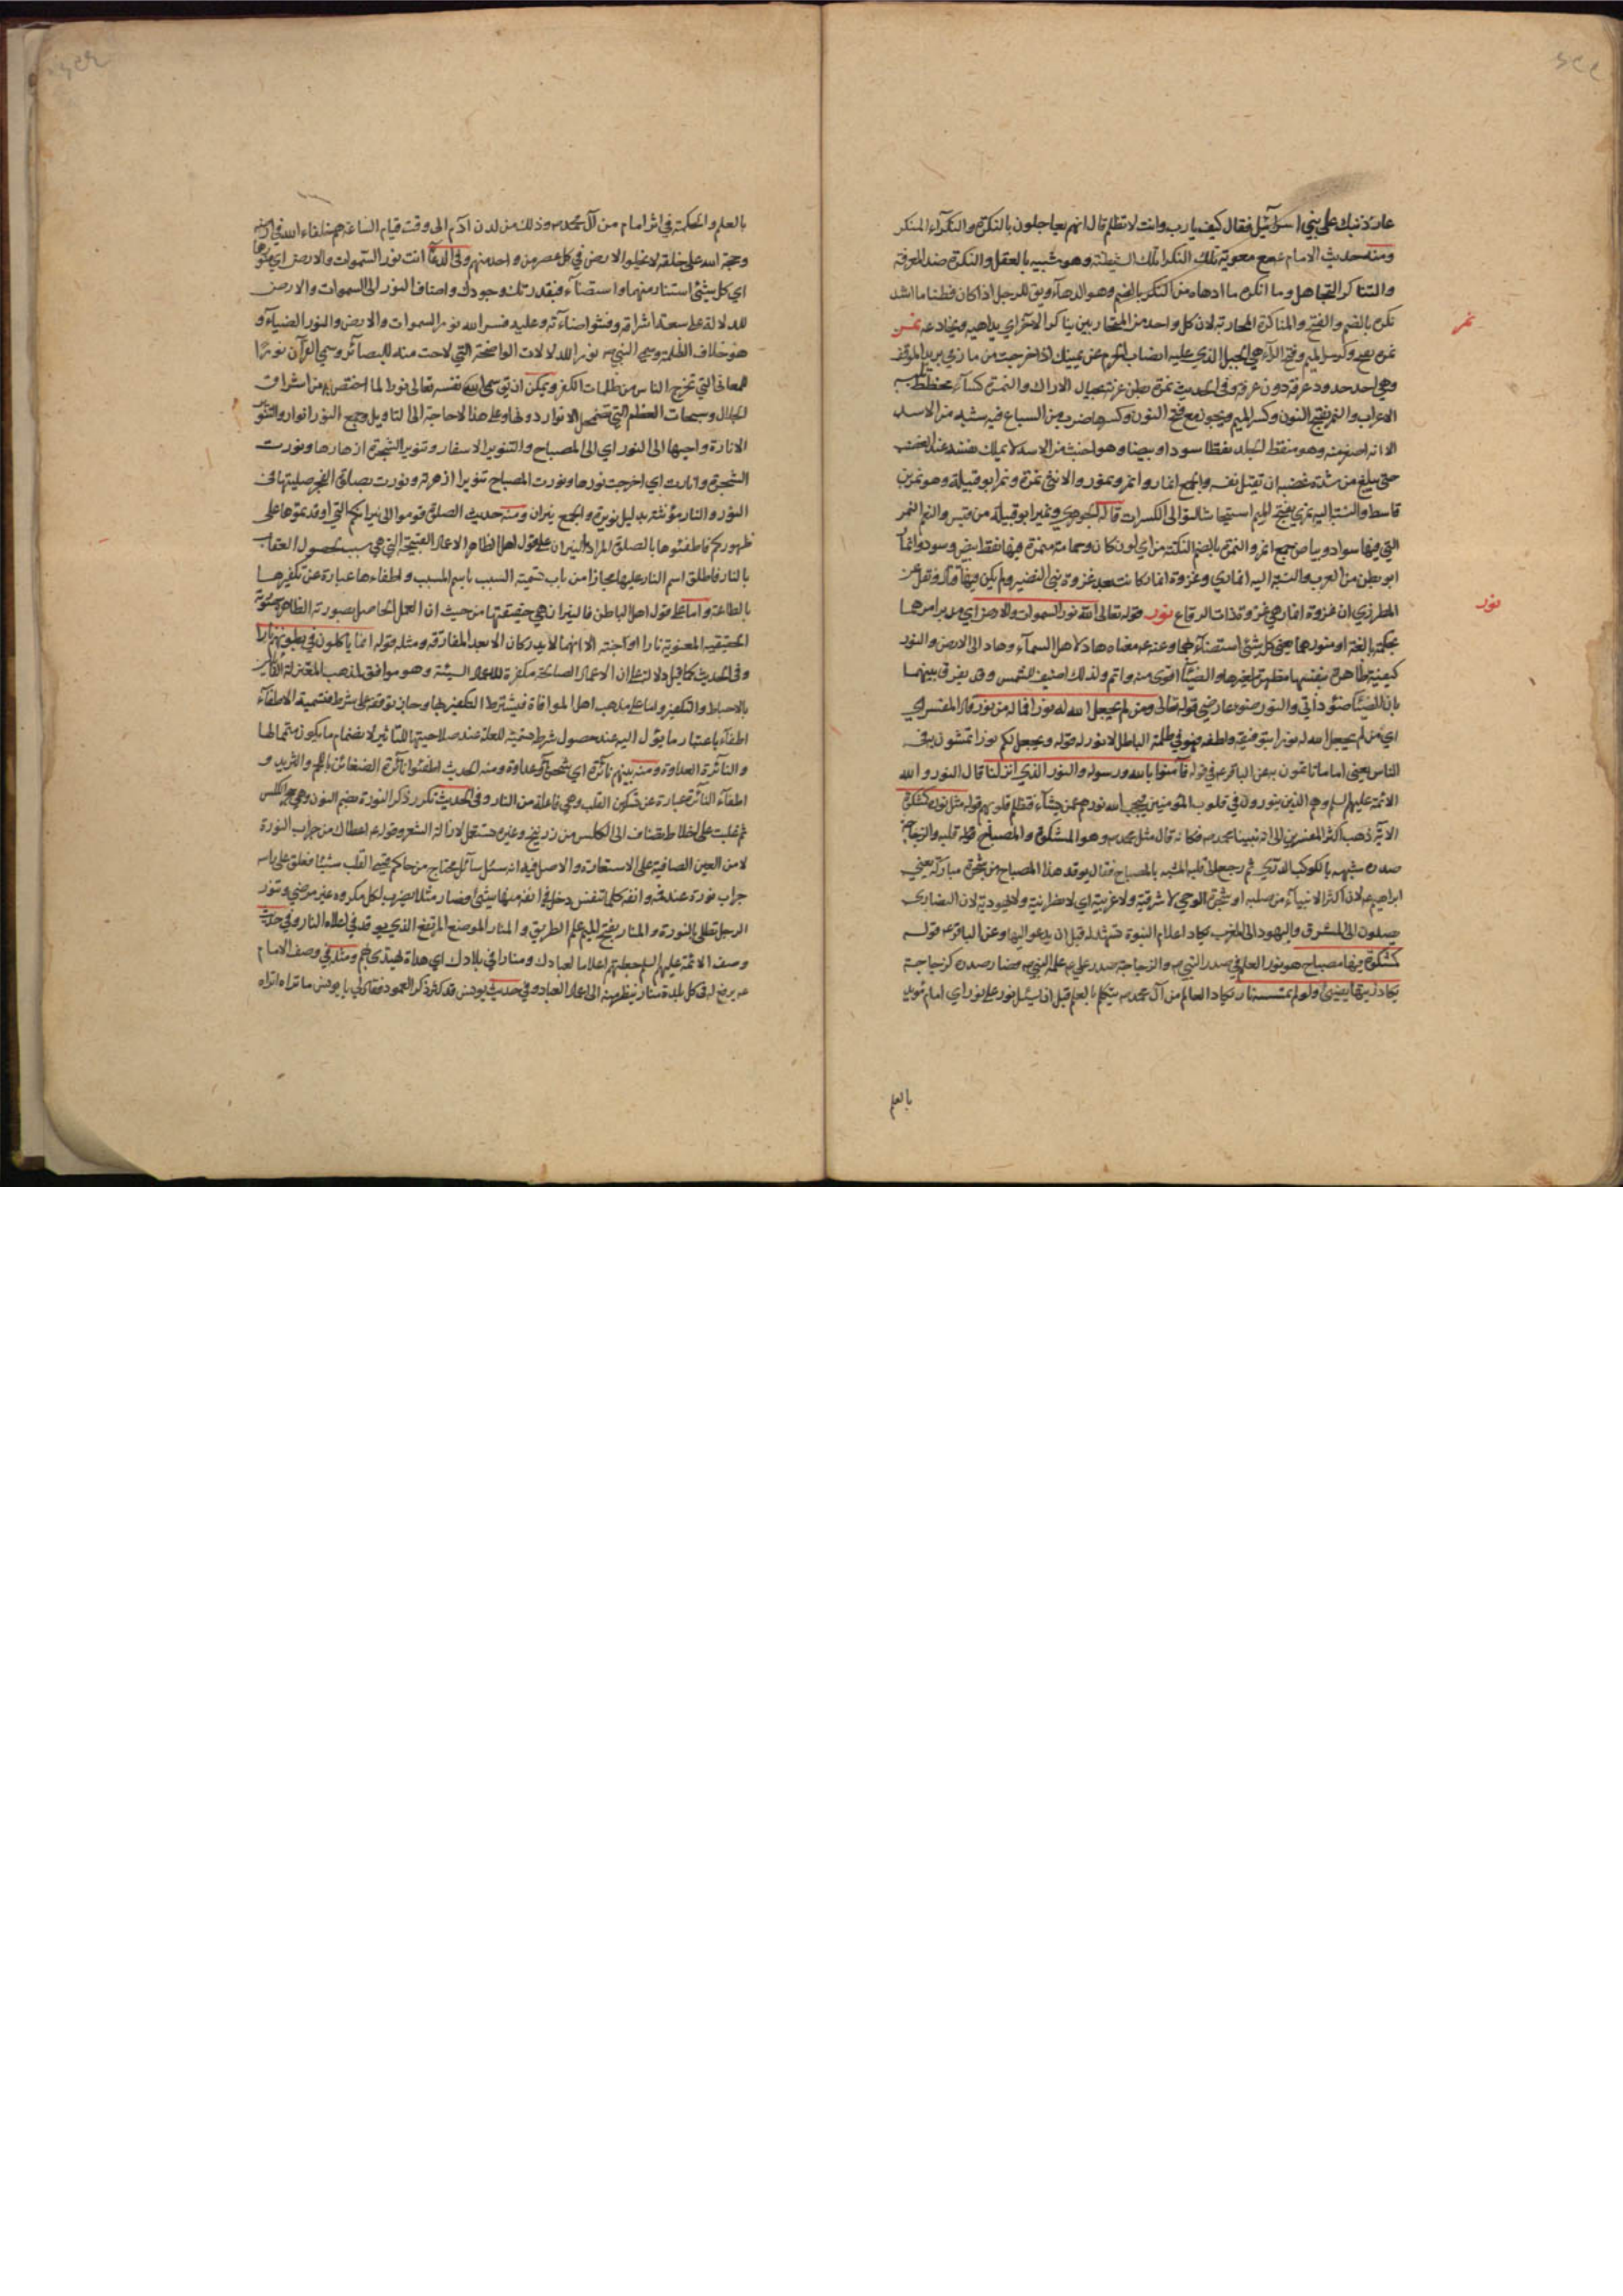 عبادك نبيك على بني اسرائيل فقال كيف يا رب وانت لا تظلم قال انهم يعاجلون بالنكرة والنكراء المنكر
ومنه حديث الامام ع مع معوية تلك النكراء تلك الشيطنة وهو شبيه بالعقل والنكرة ضد المعرفة
والتناكر التجاهل وما انكره ما ادهاه من النكر بالضم وهو الدهاء ويق للرجل اذا كان فطنا ما اشد
نكره بالضم والفتح والمناكرة المحاربة لان كل واحد من المتحاربين يناكر الاخر اي يداهيه ويخادعه نمر
نمرة بفتح وكسر الميم وفتح الراء هي الجبل الذي عليه انصاب الحرم عن يمينك اذا خرجت من مازمي يريد الموقف
وهي احد حدود عرفة دون عرفة وفي الحديث نمرة بطن عرنة بحيال الاراك والنمرة كساء مخطط يلبسه
الاعراب والنمر بفتح النون وكسر الميم ويجوز مع فتح النون وكسرها ضرب من السباع فيه شبه من الاسد
الا انه اصغر منه وهو منقط الجلد نقطا سودا وبيضا وهو اخبث من الاسد لا يملك نفسه عند الغضب
حتى يبلغ من شدة غضبه ان يقتل نفسه والجمع انمار وانمر ونمور والانثى نمرة ونمر ابو قبيلة وهو نمر بن
قاسط والنسبة اليه نمري بفتح الميم استيحاشا لتوالي الكسرات قاله الجوهري ونمير ابو قبيلة من قيس والنعم النمر
التي فيها سواد وبياض جمع انمر والنمرة بالضم النكتة من اي لون كان وسحابة نمرة فيها نقط بيض وسود وانما
ابو بطن من العرب والنسبة اليه انماري وغزوة انمار كانت بعد غزوة بني النضير ولم يكن فيها قتال ونقل عن
المطرزي ان غزوة انمار هي غزوة ذات الرقاع نور قوله تعالى الله نور السموات والارض اي مدبر امرهما
بحكمة بالغة او منورهما يعني كل شيء استضاء بهما وعنه ع معناه هاد لاهل السماء وهاد الى الارض والنور
كيفية ظاهرة بنفسها مظهرة لغيرها والضياء اقوى منه واتم ولذلك اضيف للشمس وقد يفرق بينهما
بان الضياء ضوء ذاتي والنور ضوء عارضي قوله تعالى ومن لم يجعل الله له نورا فما له من نور قال المفسر اي
اي من لم يجعل الله له نورا بتوفيقه ولطفه فهو في ظلمة الباطل لا نور له قوله ويجعل لكم نورا تمشون به في
الناس يعني اماما تاتمون به عن الباقر ع في قوله فامنوا بالله ورسوله والنور الذي انزلنا قال النور والله
الائمة عليهم السلم وهم الذين ينورون في قلوب المؤمنين ويحجب الله نورهم عمن يشاء فتظلم قلوبهم قوله مثل نوره كمشكوة
الاية ذهب اكثر المفسرين الى انه نبينا محمد ص فكانه قال مثل محمد ص وهو المشكوة والمصباح قوله قلبه والزجاجة
صدره شبهه بالكوكب الدري ثم رجع الى قلبه المشبه بالمصباح فقال يوقد هذا المصباح من شجرة مباركة يعني
ابراهيم ع لان اكثر الانبياء من صلبه او شجرة الوحي لا شرقية ولا غربية اي لا نصرانية ولا يهودية لان النصارى
يصلون الى المشرق واليهود الى المغرب يكاد اعلام النبوة تشهد له قبل ان يدعو اليها وعن الباقر ع قوله
كمشكوة فيها مصباح هو نور العلم في صدر النبي ص والزجاجة صدر علي ع علمه النبي ص فصار صدره كزجاجة
يكاد زيتها يضيء ولو لم تمسسه نار يكاد العالم من آل محمد ص يتكلم بالعلم قبل ان يسئل نور على نور اي امام مؤيد
بالعلم
نمر
نور
بالعلم والحكمة في اثر امام من آل محمد ص وذلك من لدن آدم الى وقت قيام الساعة هم خلفاء الله في ارضه
وحجة الله على خلقه لا تخلوا الارض في كل عصر من واحد منهم وفي الدعاء انت نور السموات والارض اي منورها
اي كل شيء استنار منهما واستضاء فبقدرتك وجودك واضاف النور الى السموات والارض
للدلالة على سعة اشراقه وفشو اضاءته وعليه فسر الله نور السموات والارض والنور الضياء و
هو خلاف الظلمة وسمي النبي ص نورا للدلالات الواضحة التي لاحت منه للبصائر وسمي القرآن نورا
للمعاني التي تخرج الناس من ظلمات الكفر ويمكن ان يق سمى الله نفسه تعالى نورا لما اختص به من اشراق
الجلال وسبحات العظم التي تضمحل الانوار دونها وعلى هذا لا حاجة الى التاويل وجمع النور انوار والتنو
الانارة واجبها الى النور اي الى المصباح والتنوير الاسفار وتنوير الشجرة ازهارها ونورت
الشجرة وانارت اي اخرجت نورها ونورت المصباح تنويرا ازهرته ونورت بصلوة الفجر صليتها في
النور والنار مؤنثة بدليل نويرة والجمع نيران ومنه حديث الصلوة قوموا الى نيرانكم التي اوقدتموها على
ظهوركم فاطفئوها بالصلوة المراد بالنيران على قول اهل الظاهر الاعمال القبيحة التي هي سبب لحصول العقاب
بالنار فاطلق اسم النار عليها مجازا من باب تسمية السبب باسم المسبب واطفاءها عبارة عن تكفيرها
بالطاعة واما على قول اهل الباطن فالنيران هي حقيقتها من حيث ان العمل الحاصل بصورته الظاهرة
الحقيقية المعنوية نارا او جنة الا انهما لا يدركان الا بعد المفارقة ومثله قوله انما ياكلون في بطونهم نارا
وفي الحديث كما قيل دلالة على ان الاعمال الصالحة مكفرة للاعمال السيئة وهو موافق لمذهب المعتزلة القائلين
بالاحباط والتكفير واما على مذهب اهل الموافاة فيشترط التكفير بها وجاز توقفه على شرط فتسمية الاطفاء
اطفاء باعتبار ما يؤل اليه عند حصول شرط تتميه للعلة ضد صلاحيتها للتاثير لانضمام ما يكون متمما لها
والنائرة العداوة ومنه بينهم نائرة اي شحناء وعداوة ومنه الحديث اطفئوا نائرة الضغائن باللحم والثريد و
اطفاء النائرة عبارة عن تسكين القلب وهي فاعلة من النار وفي الحديث تكرر ذكر النورة بضم النون وهي حجر الكلس
ثم غلبت على اخلاط تضاف الى الكلس من زرنيخ وغيره تستعمل لازالة الشعر وقوله ع اعطاك من جراب النورة
لا من العين الصافية على الاستعارة والاصل فيه انه سئل سائل محتاج من حاكم قسي القلب شيئا فعلق على راسه
جراب نورة عند فمه وانفه كلما تنفس دخل في انفه منها شيء فصار مثلا يضرب لكل مكروه غير مرضي وتنور
الرجل تطلى بالنورة والمنار بفتح الميم علم الطريق والمنار الموضع المرتفع الذي يوقد في اعلاه النار وفي حديث
وصف الائمة عليهم السلم جعلتهم اعلاما لعبادك ومنارا في بلادك اي هداة يهتدى بهم ومثله في وصف الامام
ع يرفع له في كل بلدة منار ينظر منه الى اعمال العباد وفي حديث يونس قد كثر ذكر العمود فقال لي يا يونس ما تراه اتراه